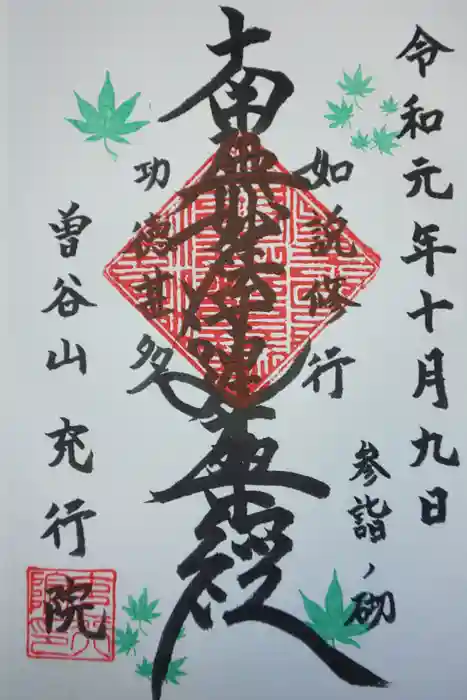 令和元年十月九日
参詣ノ砌
如説修行
南無妙法蓮華経
功徳甚多
曽谷山充行院